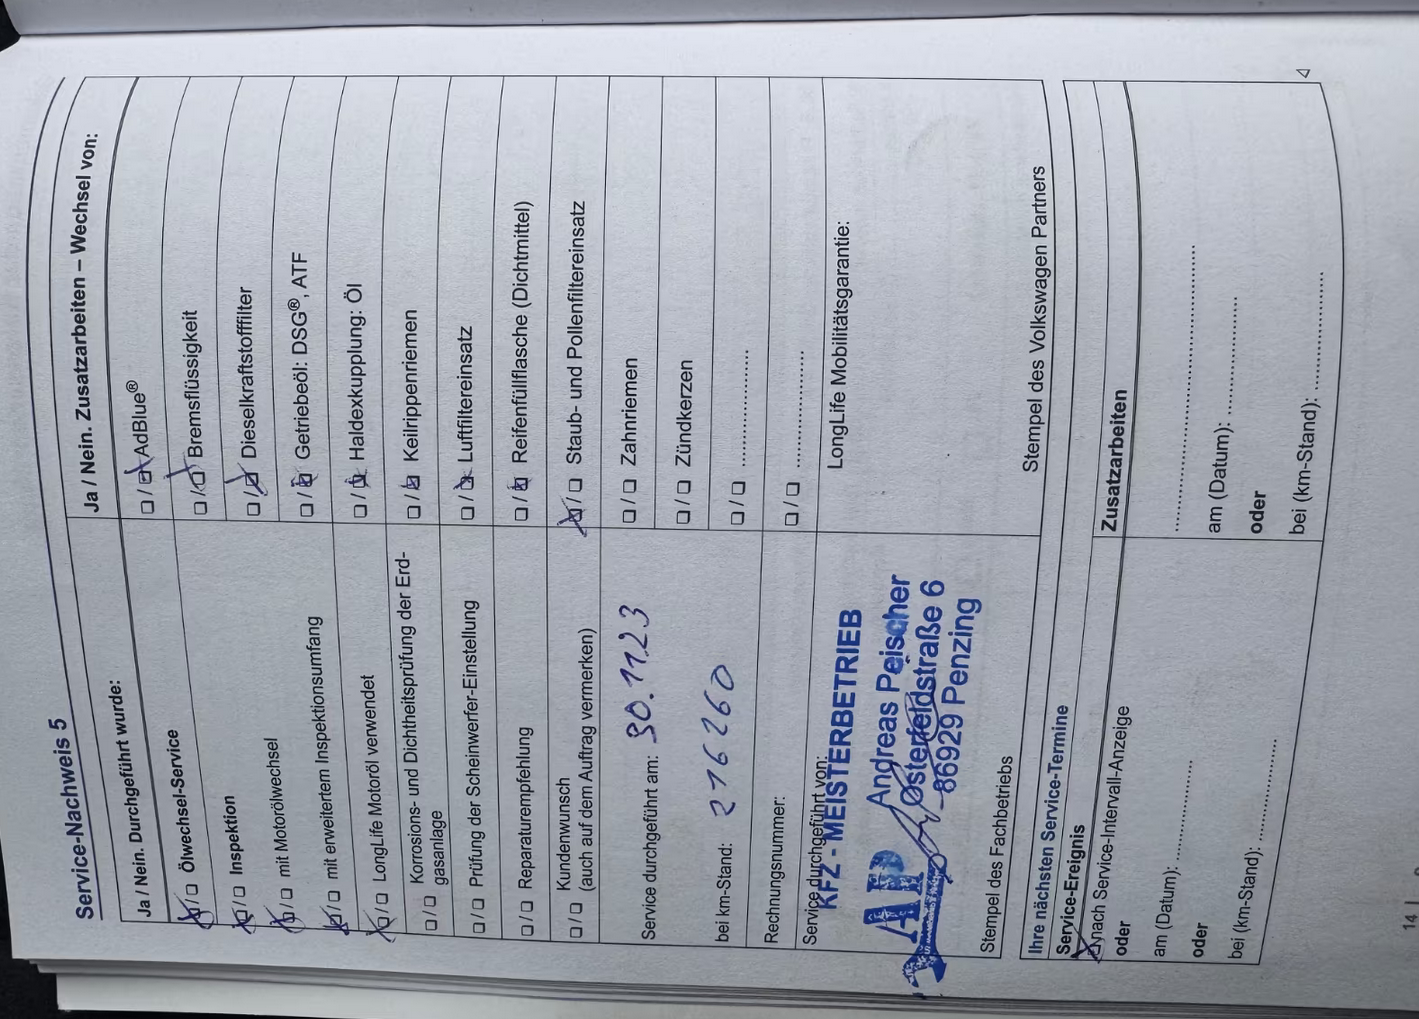 Service-Nachweis 5
Ja / Nein. Durchgeführt wurde:
☒/☐ Ölwechsel-Service
☒/☐ Inspektion
☒/☐ mit Motorölwechsel
☒/☐ mit erweitertem Inspektionsumfang
☒/☐ LongLife Motoröl verwendet
☐/☐ Korrosions- und Dichtheitsprüfung der Erd-
gasanlage
☐/☐ Prüfung der Scheinwerfer-Einstellung
☐/☐ Reparaturempfehlung
☐/☐ Kundenwunsch
(auch auf dem Auftrag vermerken)
Ja / Nein. Zusatzarbeiten – Wechsel von:
☐/☒ AdBlue®
☐/☒ Bremsflüssigkeit
☐/☒ Dieselkraftstofffilter
☐/☒ Getriebeöl: DSG®, ATF
☐/☒ Haldexkupplung: Öl
☐/☒ Keilrippenriemen
☐/☒ Luftfiltereinsatz
☐/☒ Reifenfüllflasche (Dichtmittel)
☒/☐ Staub- und Pollenfiltereinsatz
☐/☐ Zahnriemen
☐/☐ Zündkerzen
☐/☐ ....................
☐/☐ ....................
Service durchgeführt am: 30.11.23
bei km-Stand: 216260
Rechnungsnummer:
Service durchgeführt von:
KFZ - MEISTERBETRIEB
AP
Andreas Peischer
Osterfeldstraße 6
86929 Penzing
Stempel des Fachbetriebs
LongLife Mobilitätsgarantie:
Stempel des Volkswagen Partners
Ihre nächsten Service-Termine
Service-Ereignis
☒ nach Service-Intervall-Anzeige
oder
am (Datum): ....................
oder
bei (km-Stand): ....................
Zusatzarbeiten
..................................................
am (Datum): ....................
oder
bei (km-Stand): ....................
14